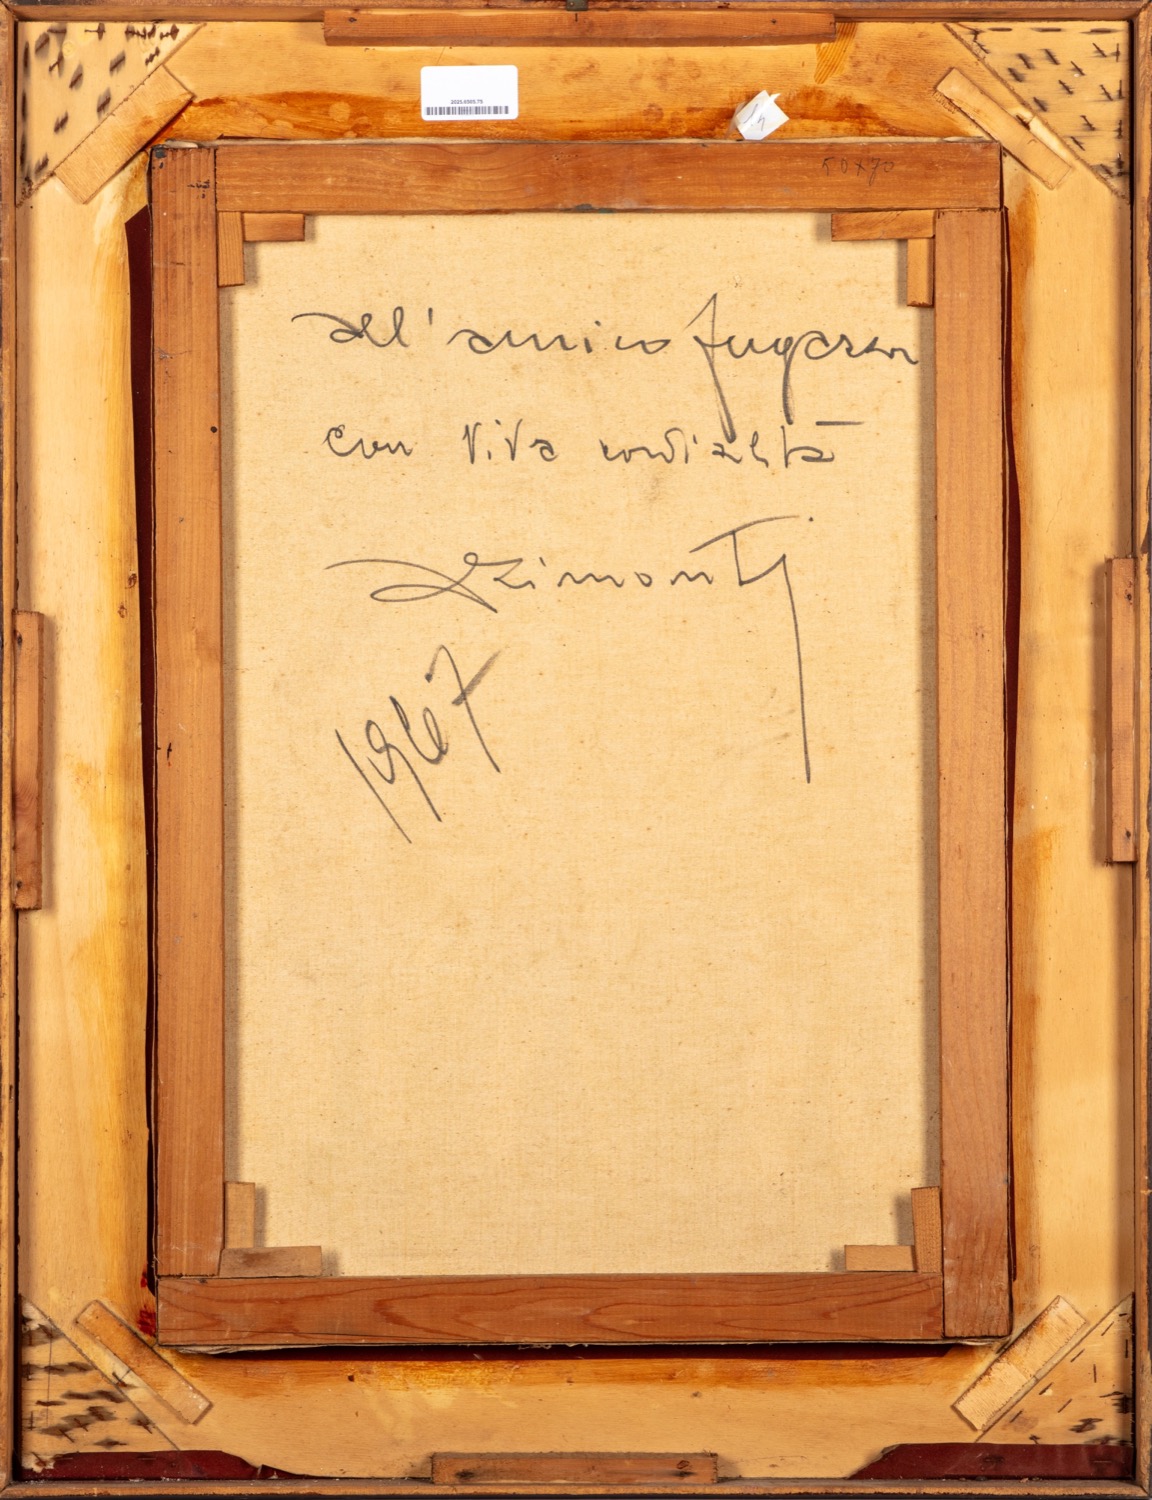 2025.6505.75
50x70
all'amico Fugazza
con viva cordialità
Azimonti
1967